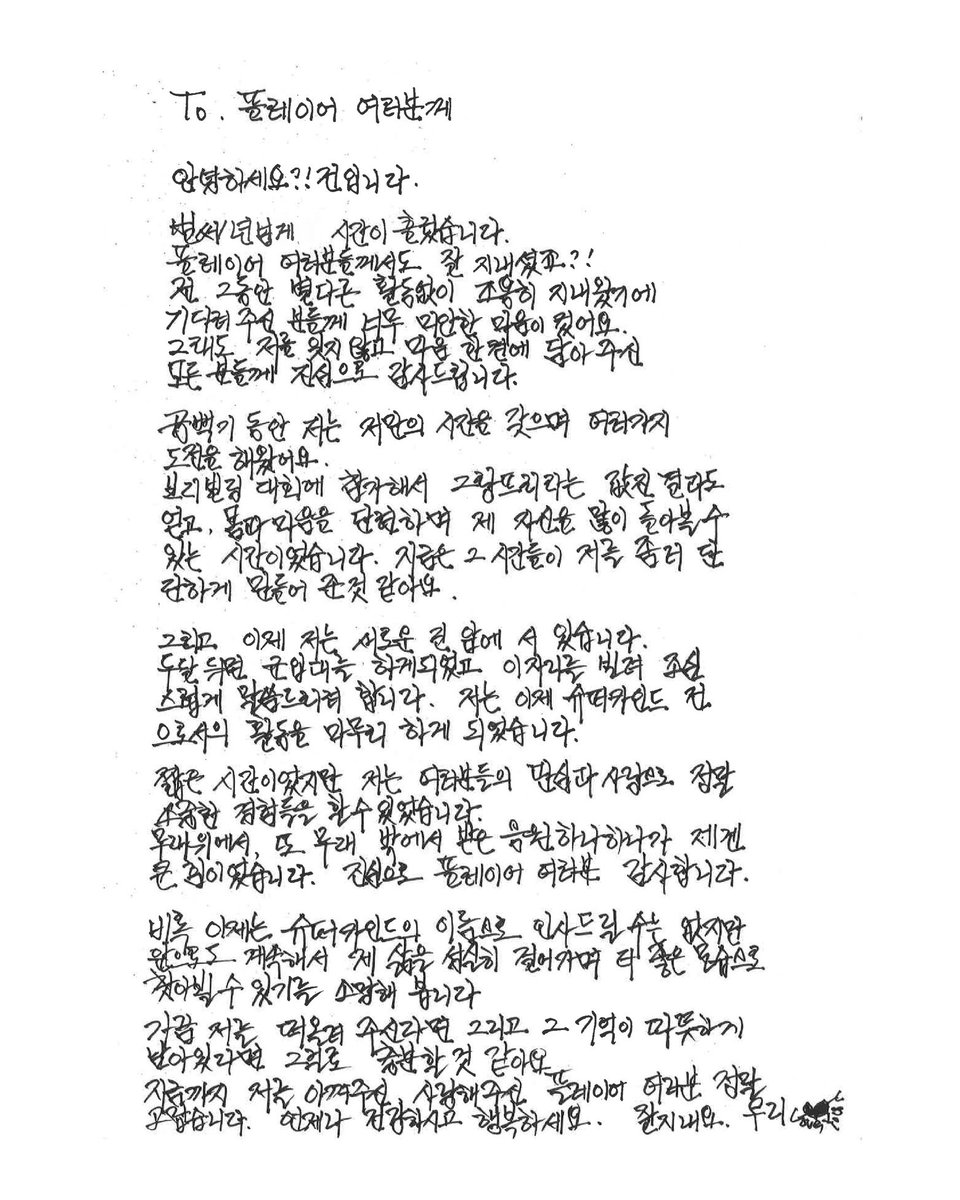 To. 플레이어 여러분께
안녕하세요?! 건입니다.
벌써 1년넘게 시간이 흘렀습니다.
플레이어 여러분들께서도 잘 지내셨죠?!
전 그동안 별다른 활동없이 조용히 지내왔기에
기다려주신 분들께 너무 미안한 마음이 컸어요.
그래도 저를 잊지 않고 마음 한켠에 담아 주신
모든 분들께 진심으로 감사드립니다.
공백기 동안 저는 저만의 시간을 갖으며 여러가지
도전을 해왔어요.
보디빌딩 대회에 참가해서 그랑프리라는 값진 결과도
얻고, 몸과 마음을 단련하며 제 자신을 많이 돌아볼 수
있는 시간이었습니다. 지금은 그 시간들이 저를 좀 더 단
단하게 만들어 준것 같아요.
그리고 이제 저는 새로운 길 앞에 서 있습니다.
두달 뒤면 군입대를 하게되었고 이자리를 빌려 조심
스럽게 말씀드리려 합니다. 저는 이제 슈퍼카인드 건
으로서의 활동을 마무리 하게 되었습니다.
짧은 시간이었지만 저는 여러분들의 관심과 사랑으로 정말
소중한 경험들을 할 수 있었습니다.
무대위에서, 또 무대 밖에서 받은 응원하나하나가 제겐
큰 힘이었습니다. 진심으로 플레이어 여러분 감사합니다.
비록 이제는 슈퍼카인드의 이름으로 인사드릴 수는 없지만
앞으로도 계속해서 제 삶을 성실히 걸어가며 더 좋은 모습으로
찾아뵐 수 있기를 소망해 봅니다
가끔 저를 떠올려 주신다면 그리고 그 기억이 따뜻하게
남아있다면 그걸로 충분할 것 같아요.
지금까지 저를 아껴주신 사랑해주신 플레이어 여러분 정말
고맙습니다. 언제나 건강하시고 행복하세요. 잘지내요. 우리